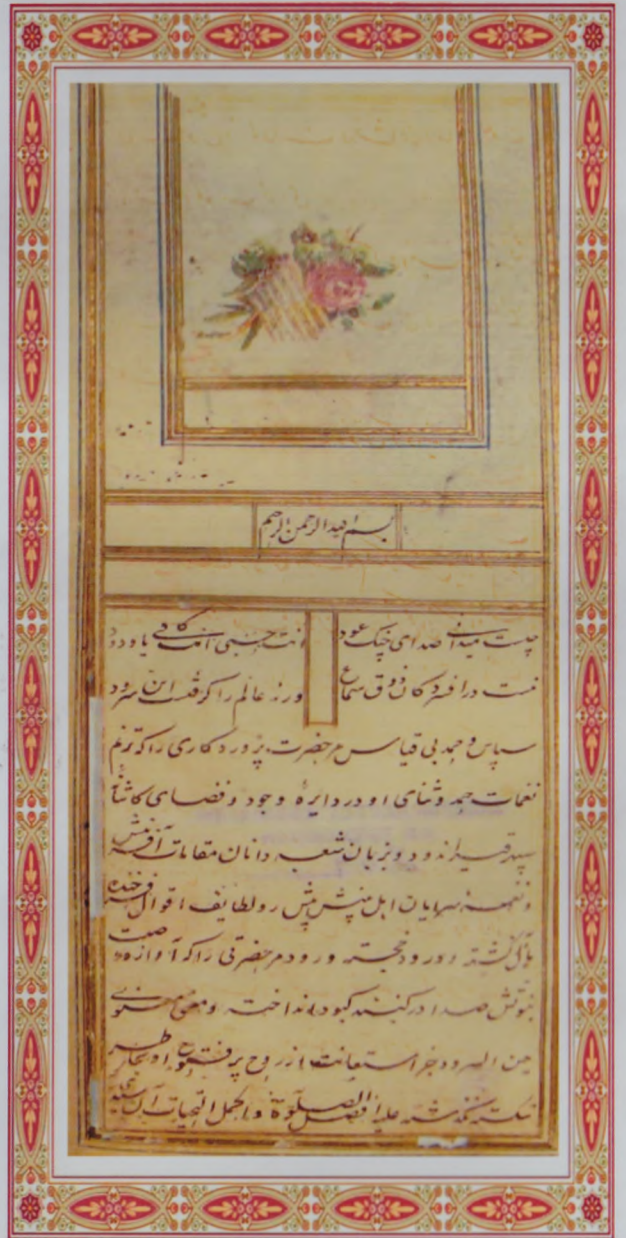 بسم الله الرحمن الرحیم
چیست میدانی صدای چنگ عود انت حسبی انت کافی یا ودود
نیست در افسردگان ذوق سماع ورنه عالم را گرفتست این سرود
سپاس و حمد بی قیاس مر حضرت پروردگاری را که ترنم
نغمات حمد و ثنای او در دایرهٔ وجود و فضای کاشانهٔ
و زبان شعبه دانان مقامات آفرینش
و نغمه سرایان اهل بینش و لطایف اقوال فرخنده
و درود مر حضرتی را که آوازهٔ صیت
نبوتش صدا در گنبد کبود انداخته و معنی
من السرود جز استعانت از روح پر فتوح او بخاطر
نگذشته علیه افضل الصلوة و اکمل التحیات